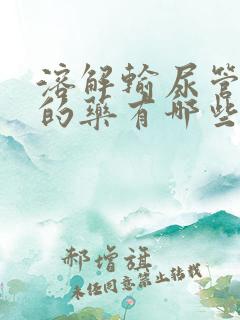 溶解输尿管
的药有哪些
郝增旗
未经同意禁止转载